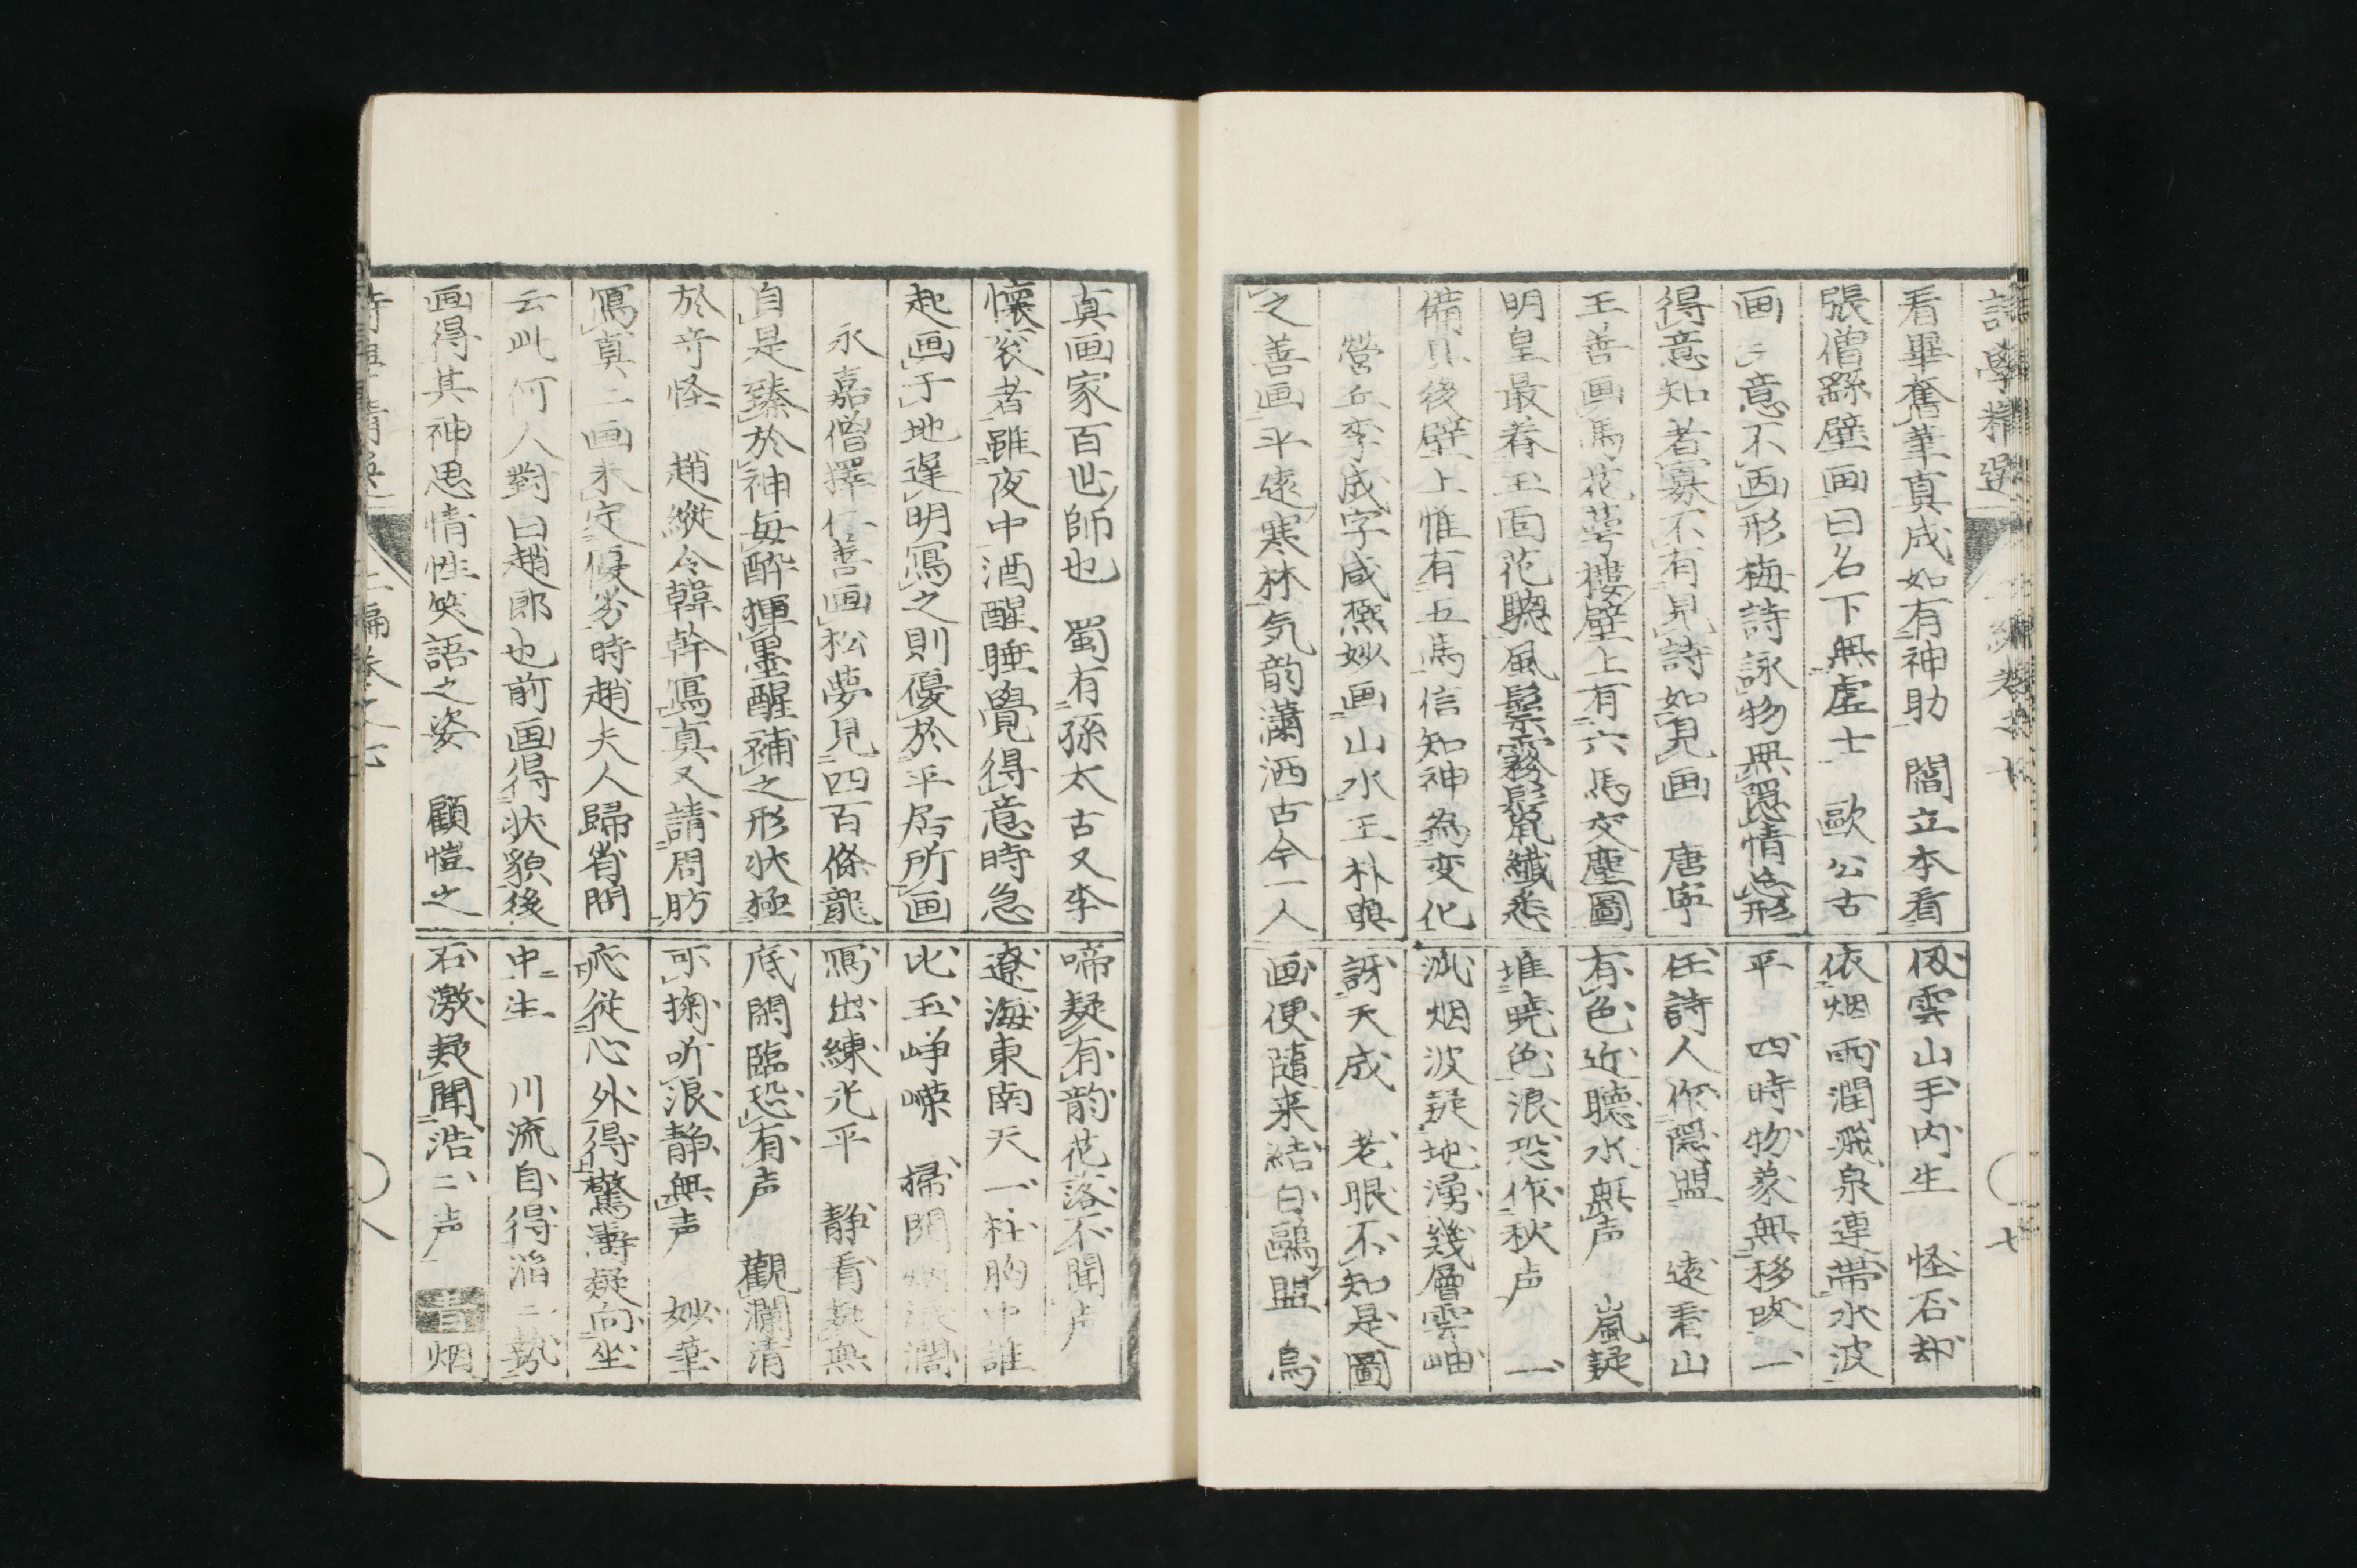 詩學精選
看畢奮筆真成如有神助　閻立本看
張僧繇壁画曰名下無虚士　歐公古
画々意不画形梅詩詠物無隠情忘形
得意知者寡不有見詩如見画　唐寧
王善画馬花萼樓壁上有六馬交塵圖
明皇最眷玉面花驄風鬃霧鬛纎悉
備具後壁上惟有五馬信知神為変化
營丘李成字咸熙妙画山水王朴與
之善画平遠寒林気韵瀟洒古今一人
似雲山手内生　怪石却
依烟雨潤飛泉連帯水波
平　四時物象無移改一
任詩人作隠盟　遠看山
有色近聴水無声　嵐疑
堆暁色浪恐作秋声　一
烟波疑地湧幾層雲岫
訝天成　老眼不知是圖
画便随来結白鷗盟　鳥
七
真画家百世師也　蜀有孫太古又李
懐衮者雖夜中酒醒睡覺得意時急
起画于地遅明寫之則優於平居所画
永嘉僧擇仁善画松夢見四百條龍
自是臻於神毎酔揮墨醒補之形状極
於奇怪　趙縱令韓幹寫真又請周昉
寫真二画未定優劣時趙夫人歸省問
云此何人對曰趙郎也前画得状貌後
画得其神思情性笑語之姿　顧愷之
啼疑有韵花落不聞声
遼海東南天一柱胸中誰
比玉崢嶸　掃開烟浪濶
寫出練光平　静看疑無
底閑臨恐有声　觀瀾清
可掬听浪静無声　妙筆
応従心外得驚濤疑向坐
中生　川流自得滔二勢
石激疑聞浩二声　青烟
八